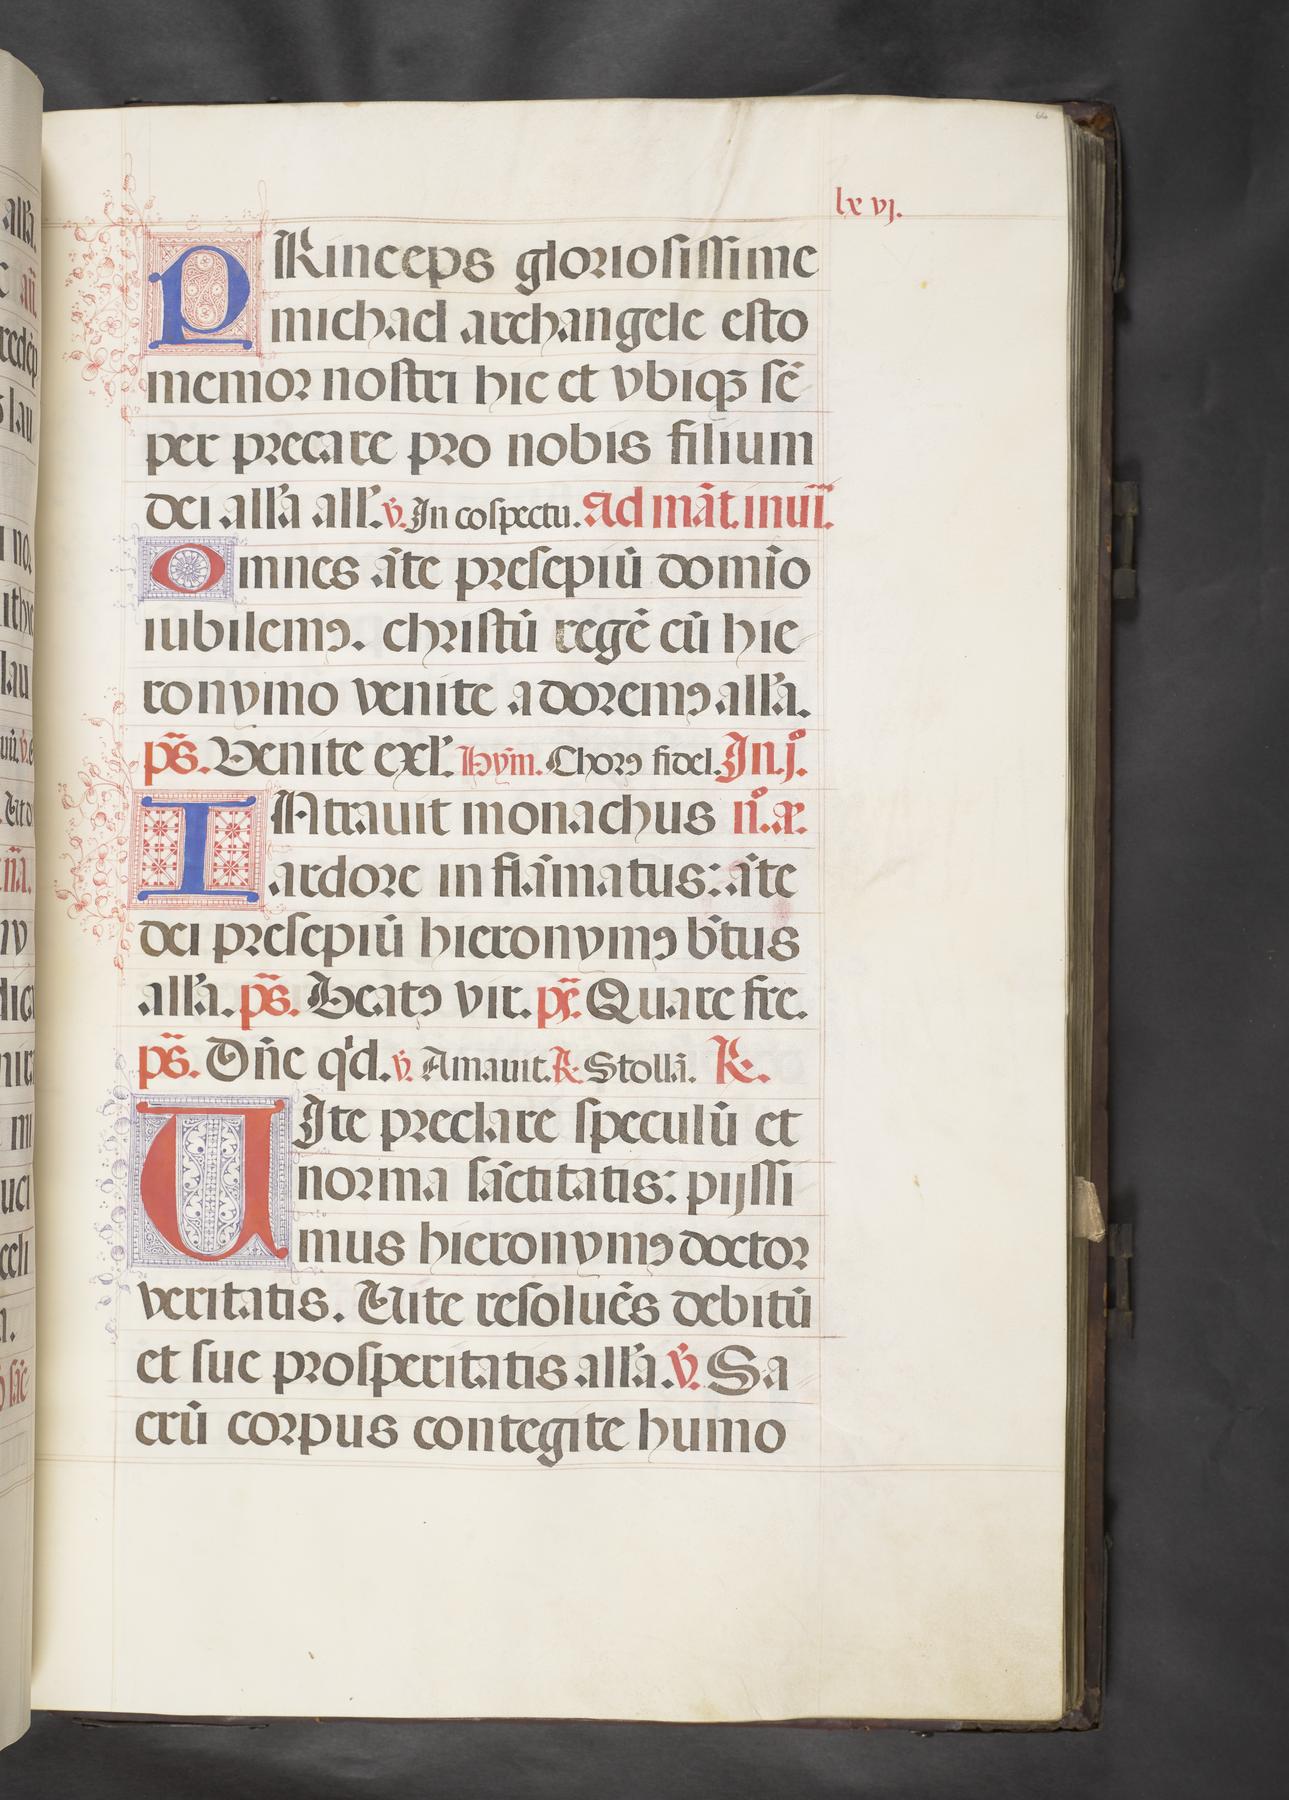 66
lxvj.
PRinceps gloriosissime
michael archangele esto
memor nostri hic et vbiqꝫ sē
per precare pro nobis filium
dei all'a all'. v̄. In cospectu. Ad māt. inuī.
Omnes āte presepiū domīo
iubilemꝯ. christū regē cū hie
ronymo venite adoremꝯ all'a.
ps̄. Venite exl'. Hym̄. Chorꝯ fidel. In .j.º
INtrauit monachus n.º æ.
ardore inflāmatus: āte
dei presepiū hieronymꝯ b'tus
all'a. ps̄. Beatꝯ vir. ps̄. Quare fre.
ps̄. Dn̄e q'd. v̄. Amauit. R. Stollā. R.
UIte preclare speculū et
norma sāctitatis: pijssi
mus hieronymꝯ doctor
veritatis. Uite resoluēs debitū
et sue prosperitatis all'a. v̄. Sa
crū corpus contegite humo